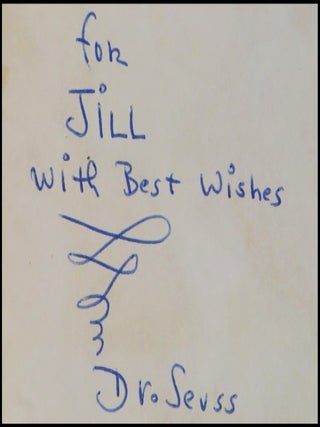 for
JiLL
with Best Wishes
Dr. Seuss